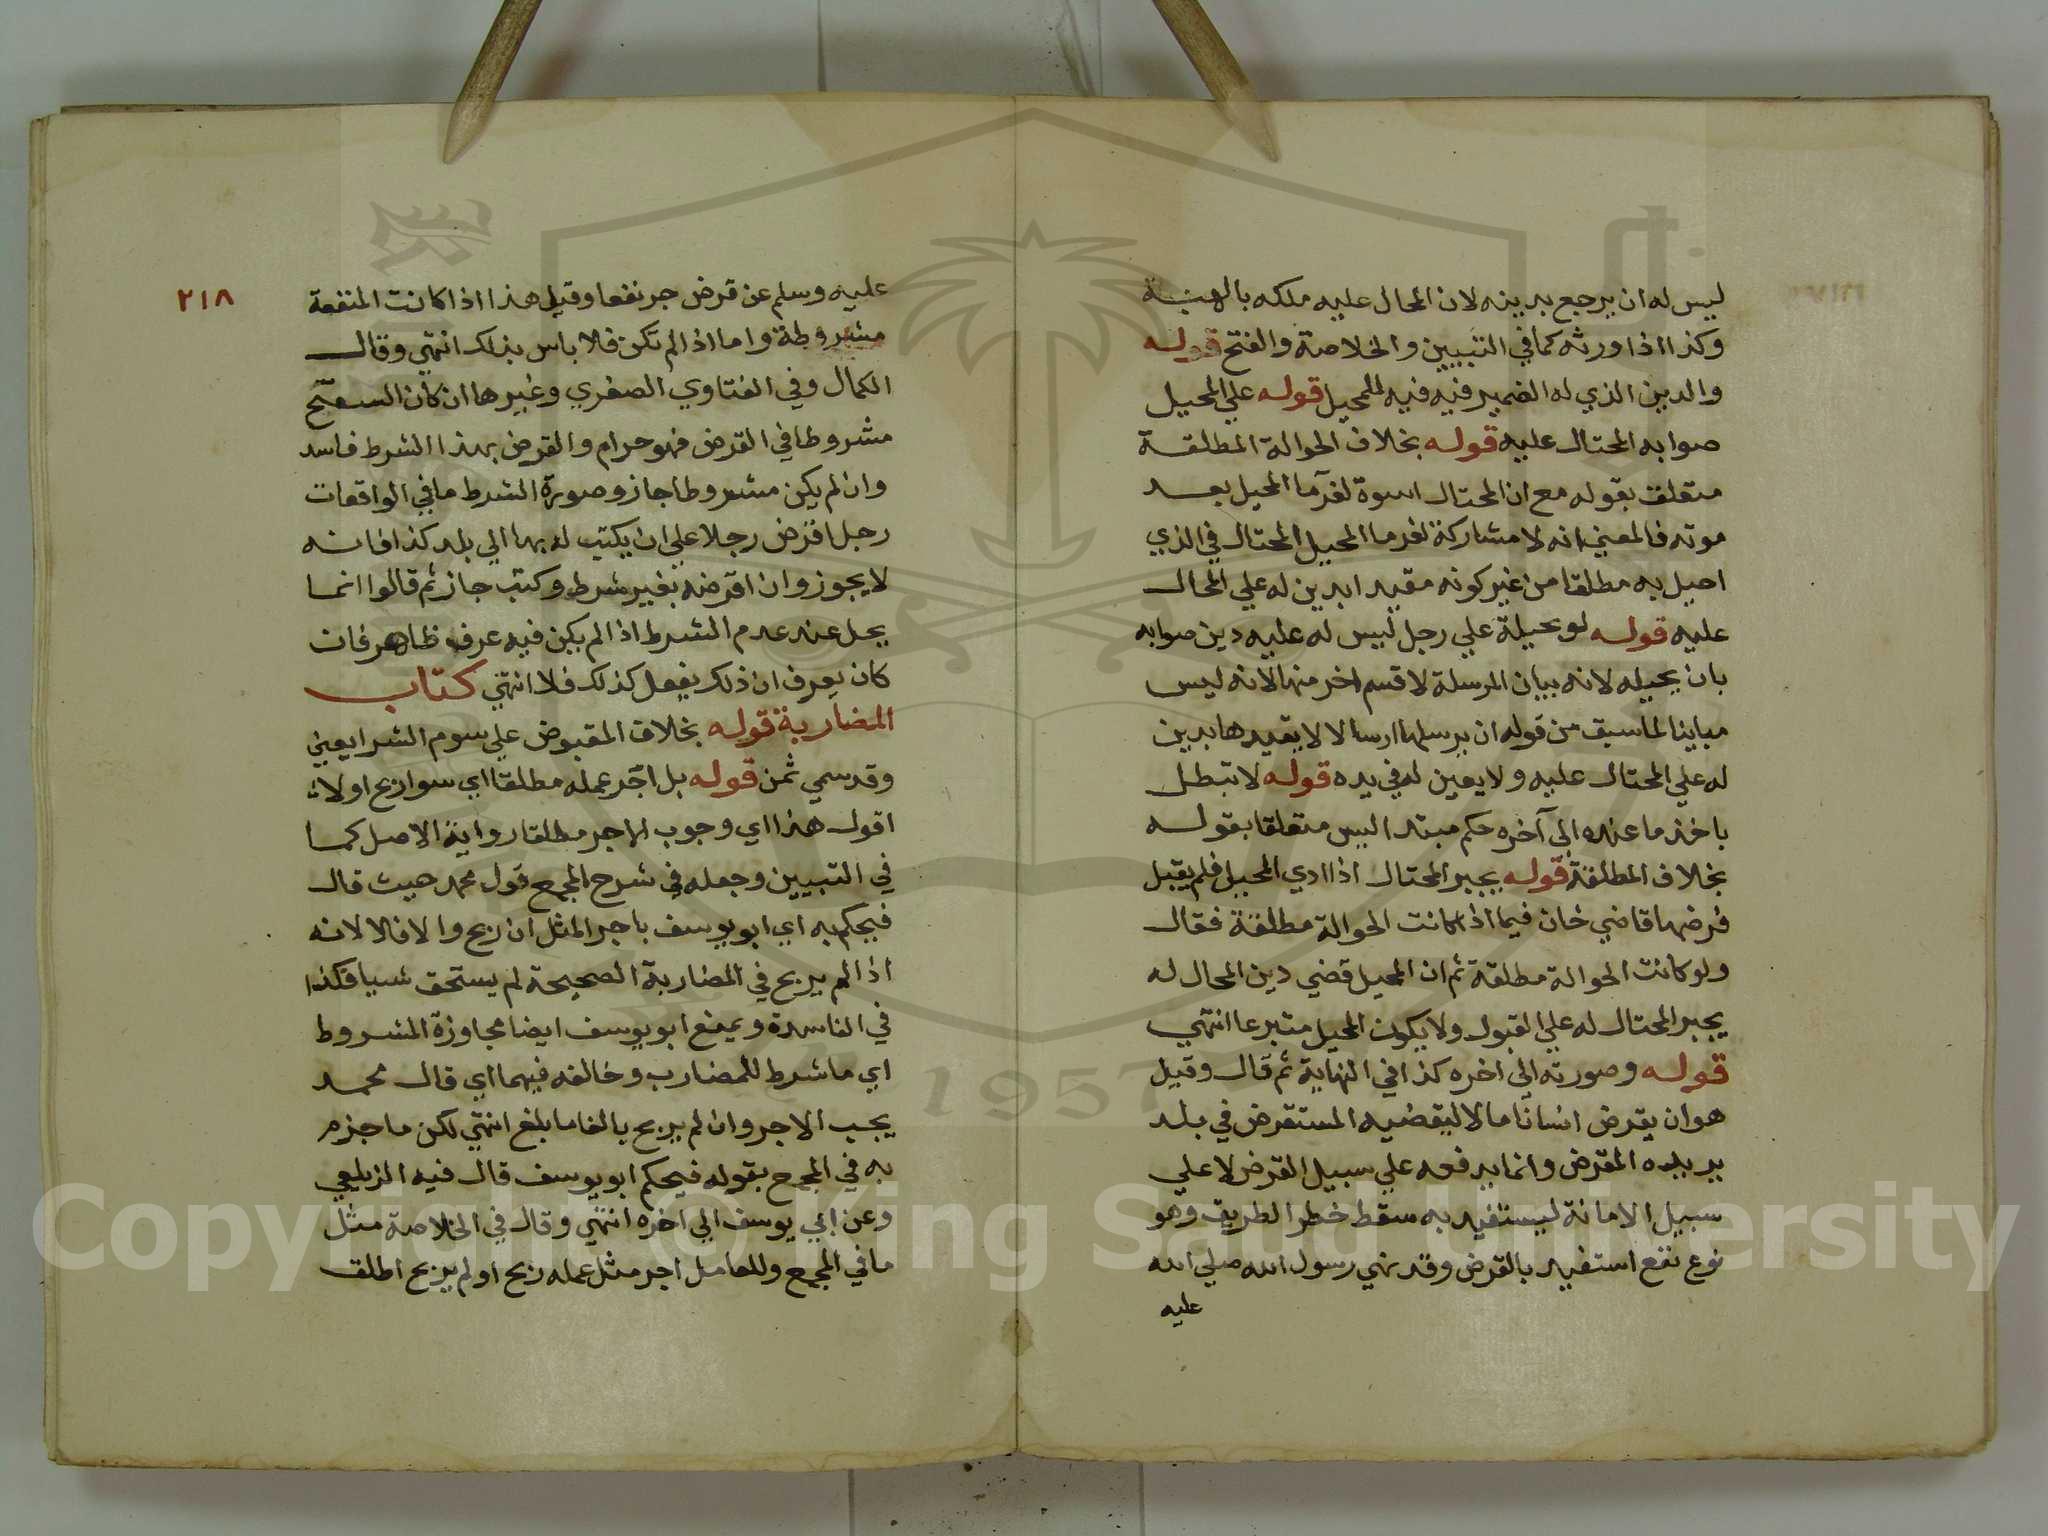 ليس له ان يرجع بدينه لان المحال عليه ملكه بالهبة
وكذا اذا ورثه كما في التبيين والخلاصة والفتح قوله
والدين الذي له الضمير فيه فيه للمحيل قوله علي المحيل
صوابه المحتال عليه قوله بخلاف الحوالة المطلقة
متعلق بقوله مع ان المحتال اسوة لغرما المحيل بعد
موته فالمعني انه لا مشاركة لغرما المحيل المحتال في الذي
احيل به مطلقا من غير كونه مقيدا بدين له علي المحال
عليه قوله لو بحيلة علي رجل ليس له عليه دين صوابه
بان يحيله لانه بيان المرسلة لا قسم اخر منها لانه ليس
مباينا لما سبق من قوله ان يرسلها ارسالا لا يقيدها بدين
له علي المحتال عليه ولا بعين له في يده قوله لا تبطل
باخذ ما عنده الى آخره حكم مبتدا ليس متعلقا بقوله
بخلاف المطلقة قوله يجبر المحتال اذا ادي المحيل فلم يقبل
فرضها قاضي خان فيما اذا كانت الحوالة مطلقة فقال
ولو كانت الحوالة مطلقة ثم ان المحيل قضي دين المحال له
يجبر المحتال له علي القبول ولا يكون المحيل متبرعا انتهي
قوله وصورته الى اخره كذا في النهاية ثم قال وقيل
هو ان يقرض انسانا مالا ليقضيه المستقرض في بلد
يريده المقرض وانما يدفعه علي سبيل القرض لا علي
سبيل الامانة ليستفيد به سقط خطر الطريق وهو
نوع نفع استفيد بالقرض وقد نهي رسول الله صلي الله
عليه
٢١٨
عليه وسلم عن قرض جر نفعا وقيل هذا اذا كانت المنفعة
مشروطة واما اذا لم تكن فلا باس بذلك انتهي وقال
الكمال وفي الفتاوي الصغري وغيرها ان كان السفتج
مشروطا في القرض فهو حرام والقرض بهذا الشرط فاسد
وان لم يكن مشروطا جاز وصورة الشرط ما في الواقعات
رجل اقرض رجلا علي ان يكتب له بها الي بلد كذا فانه
لا يجوز وان اقرضه بغير شرط وكتب جاز ثم قالوا انما
يحل عند عدم الشرط اذا لم يكن فيه عرف ظاهر فان
كان يعرف ان ذلك يفعل كذلك فلا انتهي كتاب
المضاربة قوله بخلاف المقبوض علي سوم الشرا يعني
وقد سمي ثمن قوله بل اجر عمله مطلقا اي سوا ربح او لا
اقول هذا اي وجوب الاجر مطلقا رواية الاصل كما
في التبيين وجعله في شرح المجمع قول محمد حيث قال
فيحكم به اي ابو يوسف باجر المثل ان ربح والا فلا لانه
اذا لم يربح في المضاربة الصحيحة لم يستحق شيا فكذا
في الفاسدة ويمنع ابو يوسف ايضا مجاوزة المشروط
اي ما شرط للمضارب وخالفه فيهما اي قال محمد
يجب الاجر وان لم يربح بالغا ما بلغ انتهي لكن ما جزم
به في المجمع بقوله فيحكم ابو يوسف قال فيه الزيلعي
وعن ابي يوسف الي اخره انتهي وقال في الخلاصة مثل
ما في المجمع وللعامل اجر مثل عمله ربح او لم يربح اطلق
Copyright © King Saud University
1957